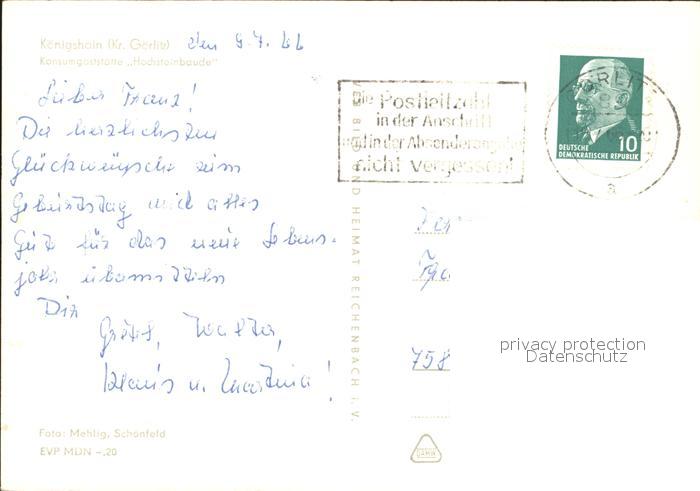 Königshain (Kr. Görlitz) den 9.7.66
Konsumgaststätte „Hochsteinbaude"
Lieber Franz!
Die herzlichsten
Glückwünsche zum
Geburtstag und alles
Gute für das neue Lebens-
jahr übermitteln
Dir
Gretel, Walter,
Klaus u. Martina!
Foto: Mehlig, Schönfeld
EVP MDN –.20
VEB BILD UND HEIMAT REICHENBACH I. V.
Die Postleitzahl
in der Anschrift
und in der Absenderangabe
nicht vergessen!
GÖRLITZ
a
10
DEUTSCHE
DEMOKRATISCHE REPUBLIK
758
privacy protection
Datenschutz